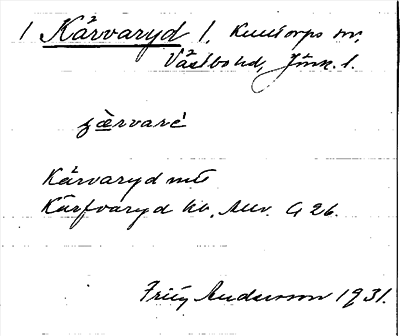 1 Kärvaryd 1. Kulltorps sn,
Västbo hd, Jönk. l.
ɟærvaré
Kärvaryd mtl
Kärfvaryd kb. Allv. G 26.
Fritz Andersson 1931.